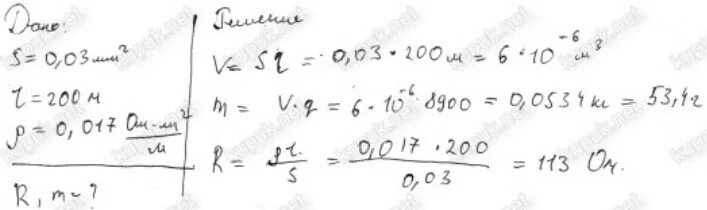 Дано:
S = 0,03 мм²
l = 200 м
ρ = 0,017 Ом·мм²/м
R, m = ?
Решение
V = Sl = 0,03 · 200 м = 6 · 10⁻⁶ м³
m = V·q = 6 · 10⁻⁶ · 8900 = 0,0534 кг = 53,4 г
R = ρl/S = 0,017 · 200/0,03 = 113 Ом.